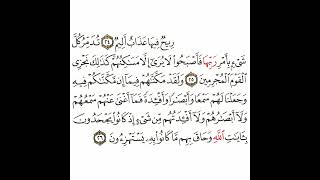 رِيحٌ فِيهَا عَذَابٌ أَلِيمٌ ٢٤ تُدَمِّرُ كُلَّ
شَيْءٍ بِأَمْرِ رَبِّهَا فَأَصْبَحُوا۟ لَا يُرَىٰٓ إِلَّا مَسَـٰكِنُهُمْ كَذَٰلِكَ نَجْزِى
ٱلْقَوْمَ ٱلْمُجْرِمِينَ ٢٥ وَلَقَدْ مَكَّنَّـٰهُمْ فِيمَآ إِن مَّكَّنَّـٰكُمْ فِيهِ
وَجَعَلْنَا لَهُمْ سَمْعًا وَأَبْصَـٰرًا وَأَفْـِٔدَةً فَمَآ أَغْنَىٰ عَنْهُمْ سَمْعُهُمْ
وَلَآ أَبْصَـٰرُهُمْ وَلَآ أَفْـِٔدَتُهُم مِّن شَيْءٍ إِذْ كَانُوا۟ يَجْحَدُونَ
بِـَٔايَـٰتِ ٱللَّهِ وَحَاقَ بِهِم مَّا كَانُوا۟ بِهِۦ يَسْتَهْزِءُونَ ٢٦